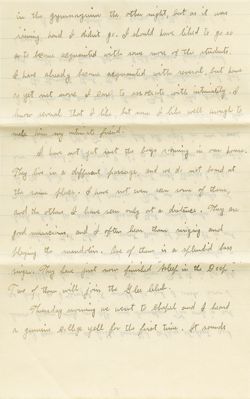 in the gymnasium the other night, but as it was
raining hard I didnt go. I should have liked to go so
as to become acquainted with some more of the students.
I have already become acquainted with several, but have
as yet not made I care to associate with intimately. I
know several that I like, but none I like well enough to
make him my intimate friend.
I have not yet met the boys rooming in our house.
They live in a different passage, and we do not board at
the same place. I have not even seen some of them,
and the others I have seen only at a distance. They are
good musicians, and I often hear them singing and
playing the mandolin. One of them is a splendid bass
singer. They have just now finished "Asleep in the Deep".
Two of them will join the Glee Club.
Thursday evening we went to Chapel and I heard
a genuine college yell for the first time. It sounds